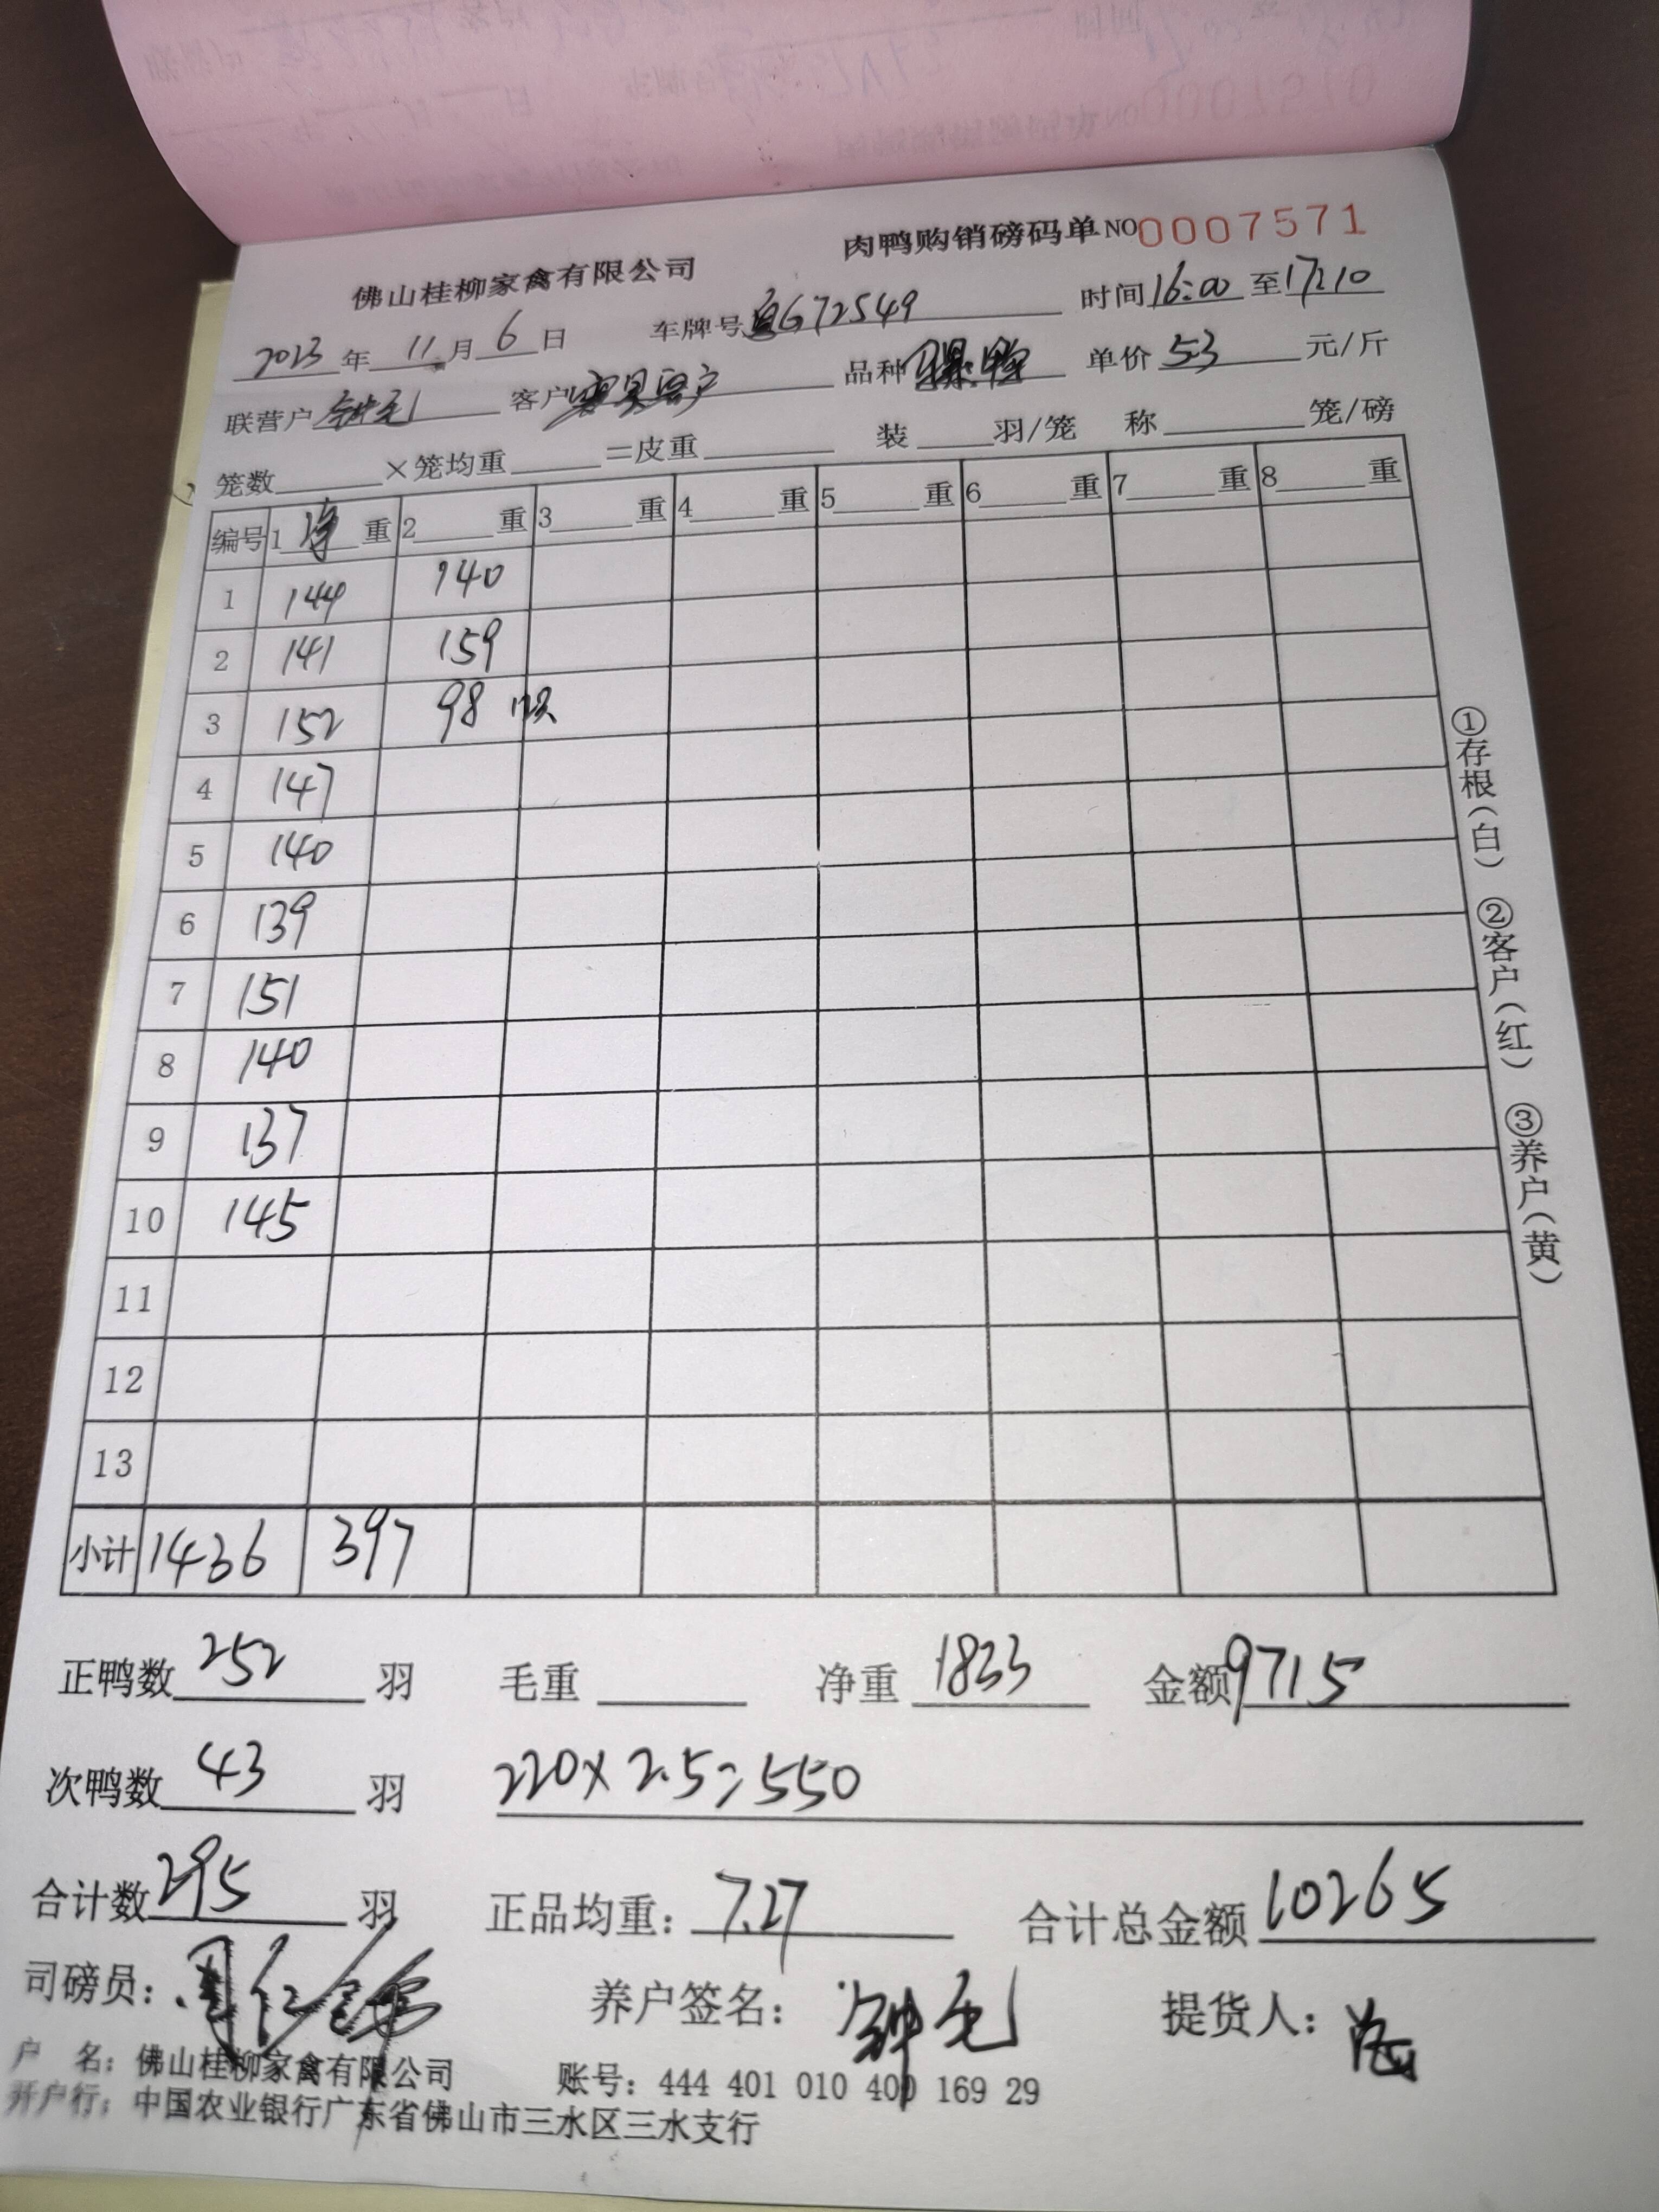 佛山桂柳家禽有限公司 肉鸭购销磅码单 NO 0007571
2023 年 11 月 6 日 车牌号 G72549 时间 16:00 至 17:10
联营户 钟毛 客户 客户 品种 鸭 单价 5.3 元/斤
笼数 ×笼均重 =皮重 装 羽/笼 称 笼/磅
编号 1 净 重 2 重 3 重 4 重 5 重 6 重 7 重 8 重
1 144 140
2 141 159
3 152 98
4 147
5 140
6 139
7 151
8 140
9 137
10 145
11
12
13
小计 1436 397
①存根(白) ②客户(红) ③养户(黄)
正鸭数 252 羽 毛重 净重 1833 金额 9715
次鸭数 43 羽 220×2.5=550
合计数 295 羽 正品均重: 7.27 合计总金额 10265
司磅员: 养户签名: 钟毛 提货人:
户 名: 佛山桂柳家禽有限公司 账号: 444 401 010 400 169 29
开户行: 中国农业银行广东省佛山市三水区三水支行